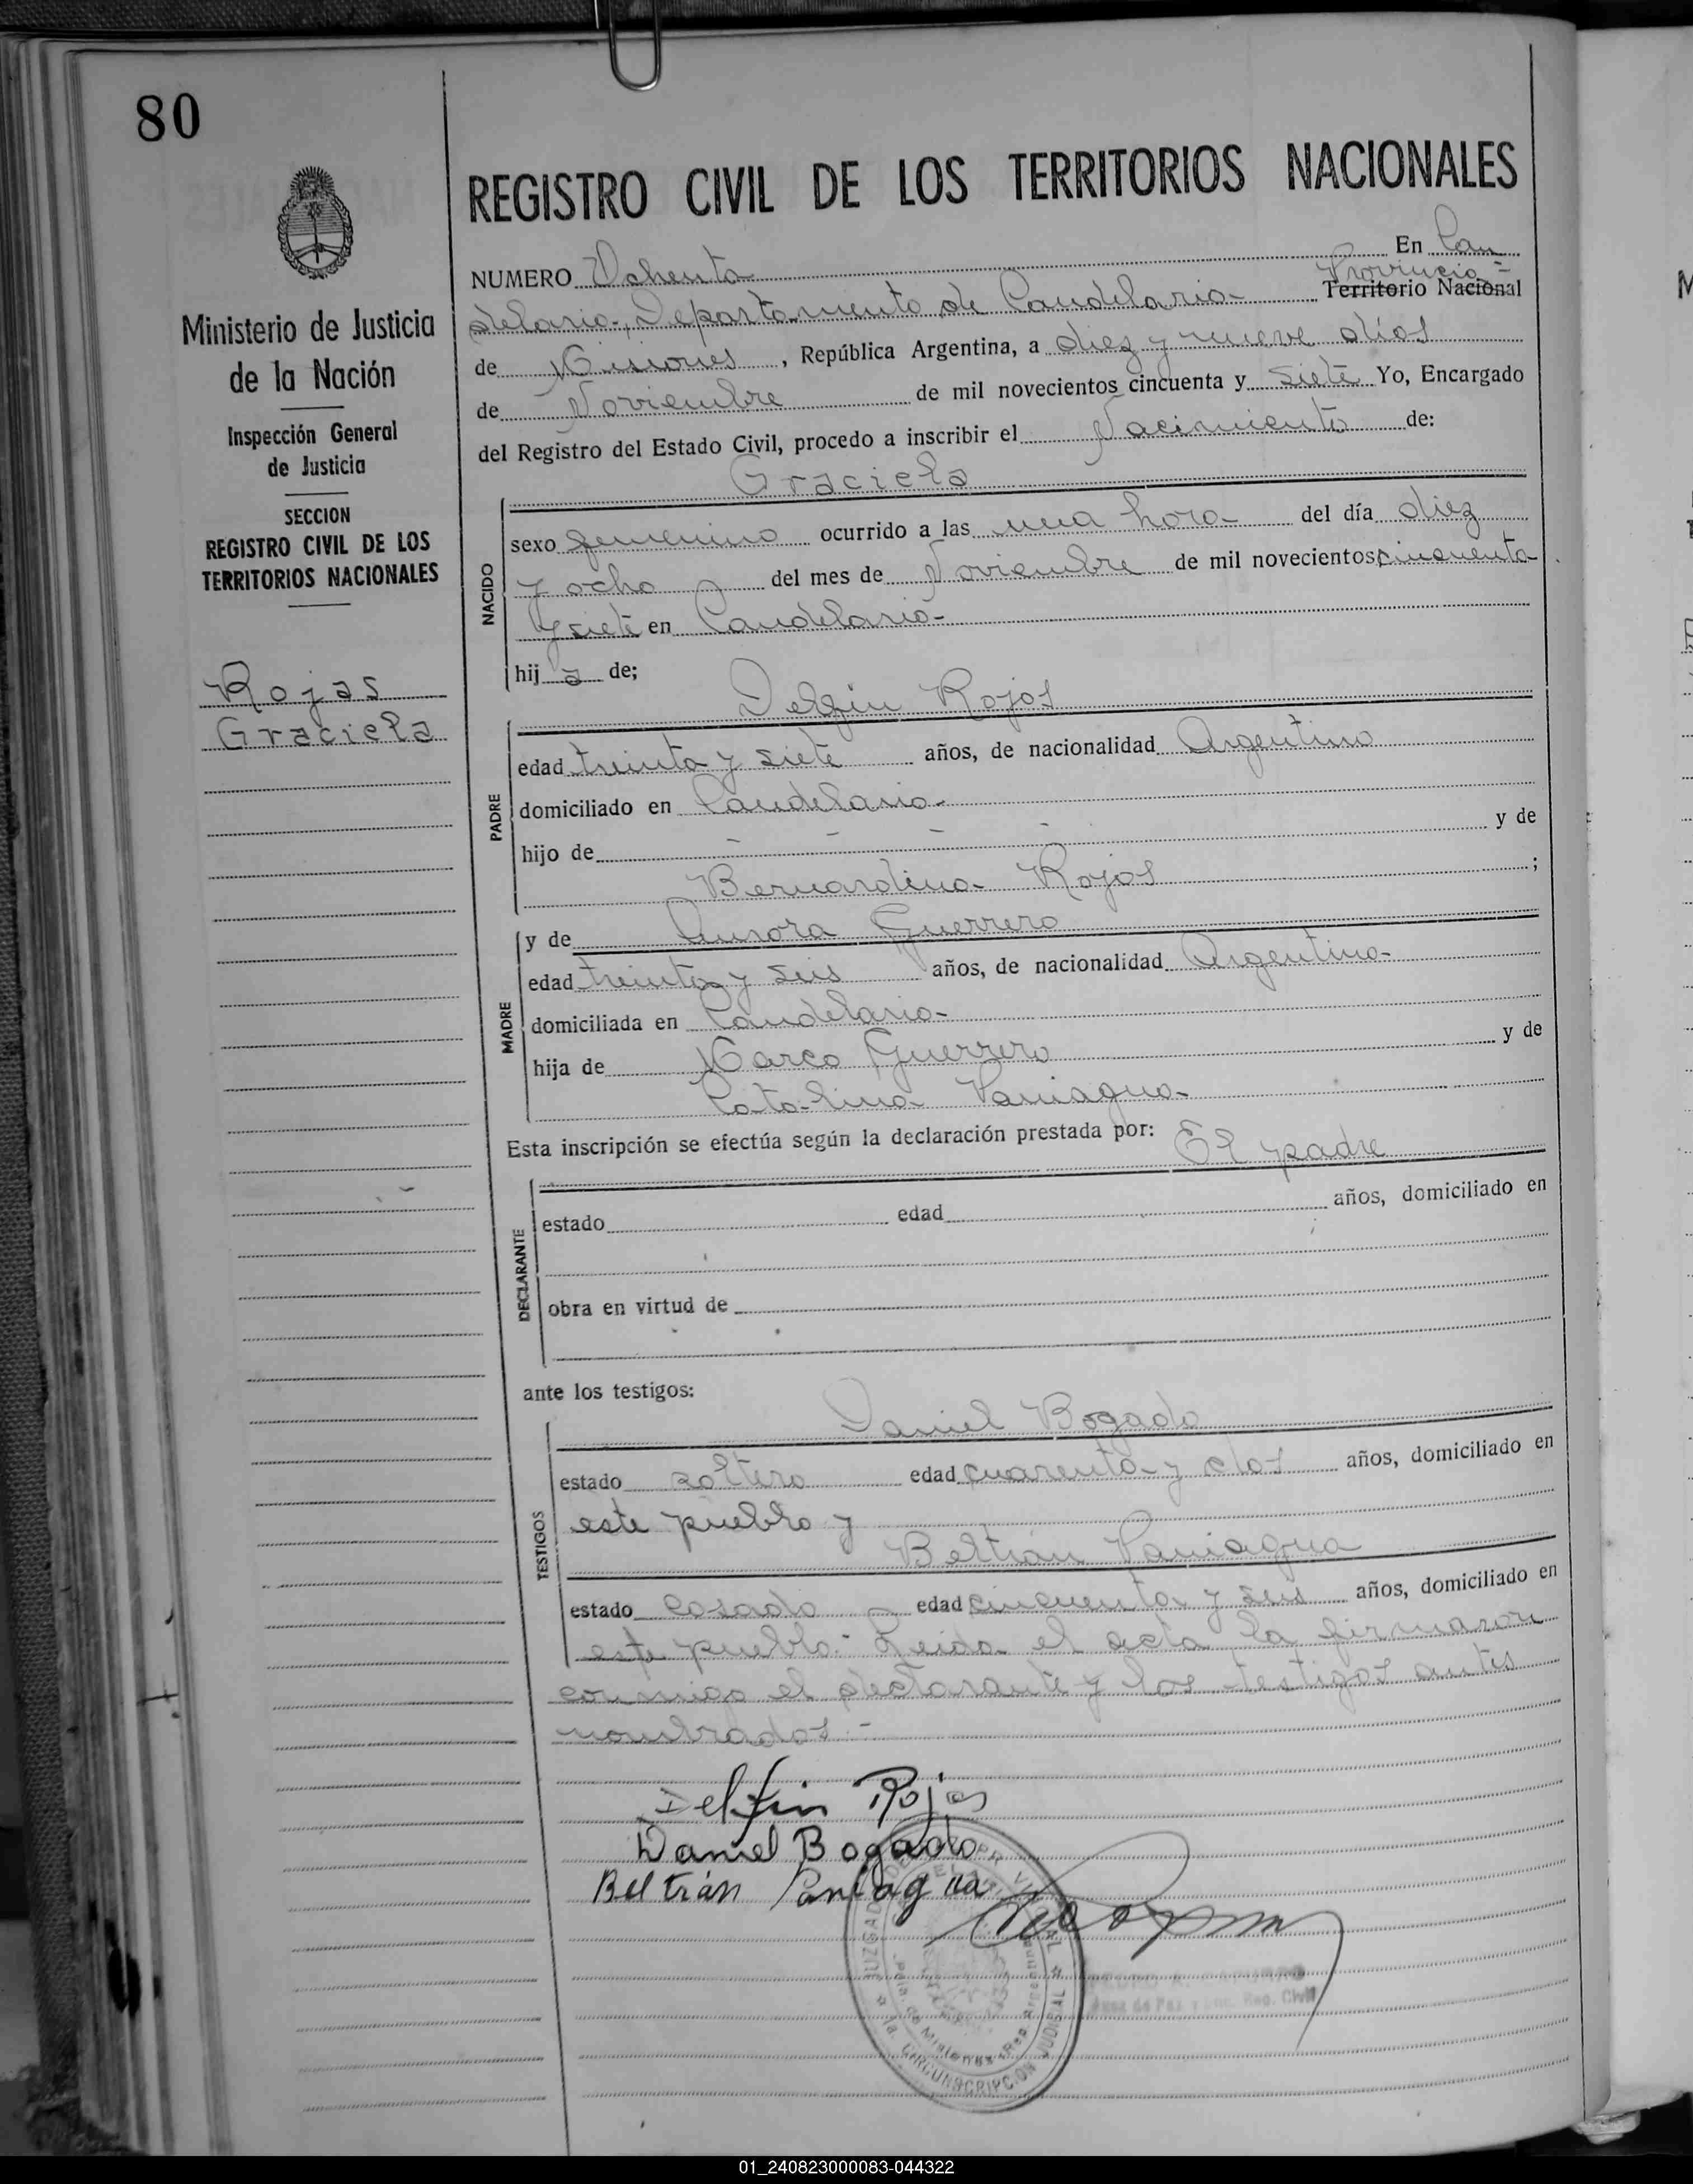 80
REGISTRO CIVIL DE LOS TERRITORIOS NACIONALES
Ministerio de Justicia
de la Nación
Inspección General
de Justicia
SECCION
REGISTRO CIVIL DE LOS
TERRITORIOS NACIONALES
Rojas
Graciela
NUMERO Ochenta En Can
Provincia
delaria, Departamento de Candelaria Territorio Nacional
de Misiones, República Argentina, a diez y nueve días
de Noviembre de mil novecientos cincuenta y siete Yo, Encargado
del Registro del Estado Civil, procedo a inscribir el Nacimiento de:
Graciela
NACIDO
sexo femenino ocurrido a las una hora del día diez
y ocho del mes de Noviembre de mil novecientos cincuenta
y siete en Candelaria-
hija de;
Delfin Rojas
PADRE
edad treinta y siete años, de nacionalidad Argentino
domiciliado en Candelaria-
hijo de - - - - y de
Bernardina Rojas ;
MADRE
y de Aurora Guerrero
edad treinta y seis años, de nacionalidad Argentina-
domiciliada en Candelaria-
hija de Marco Guerrero y de
Catalina Paniagua-
Esta inscripción se efectúa según la declaración prestada por: El padre
DECLARANTE
estado edad años, domiciliado en
obra en virtud de
ante los testigos:
Daniel Bogado
TESTIGOS
estado soltero edad cuarenta y dos años, domiciliado en
este pueblo y
Beltrán Paniagua
estado casado edad cincuenta y seis años, domiciliado en
este pueblo.- Leida el acta la firmaron
conmigo el declarante y los testigos antes
nombrados.-
Delfin Rojas
Daniel Bogado
Beltrán Paniagua
JUZGADO DE
1a. CIRCUNSCRIPCION JUDICIAL
Pcia. de Misiones Rep. Argentina
Juez de Paz y Enc. Reg. Civil
01_240823000083-044322